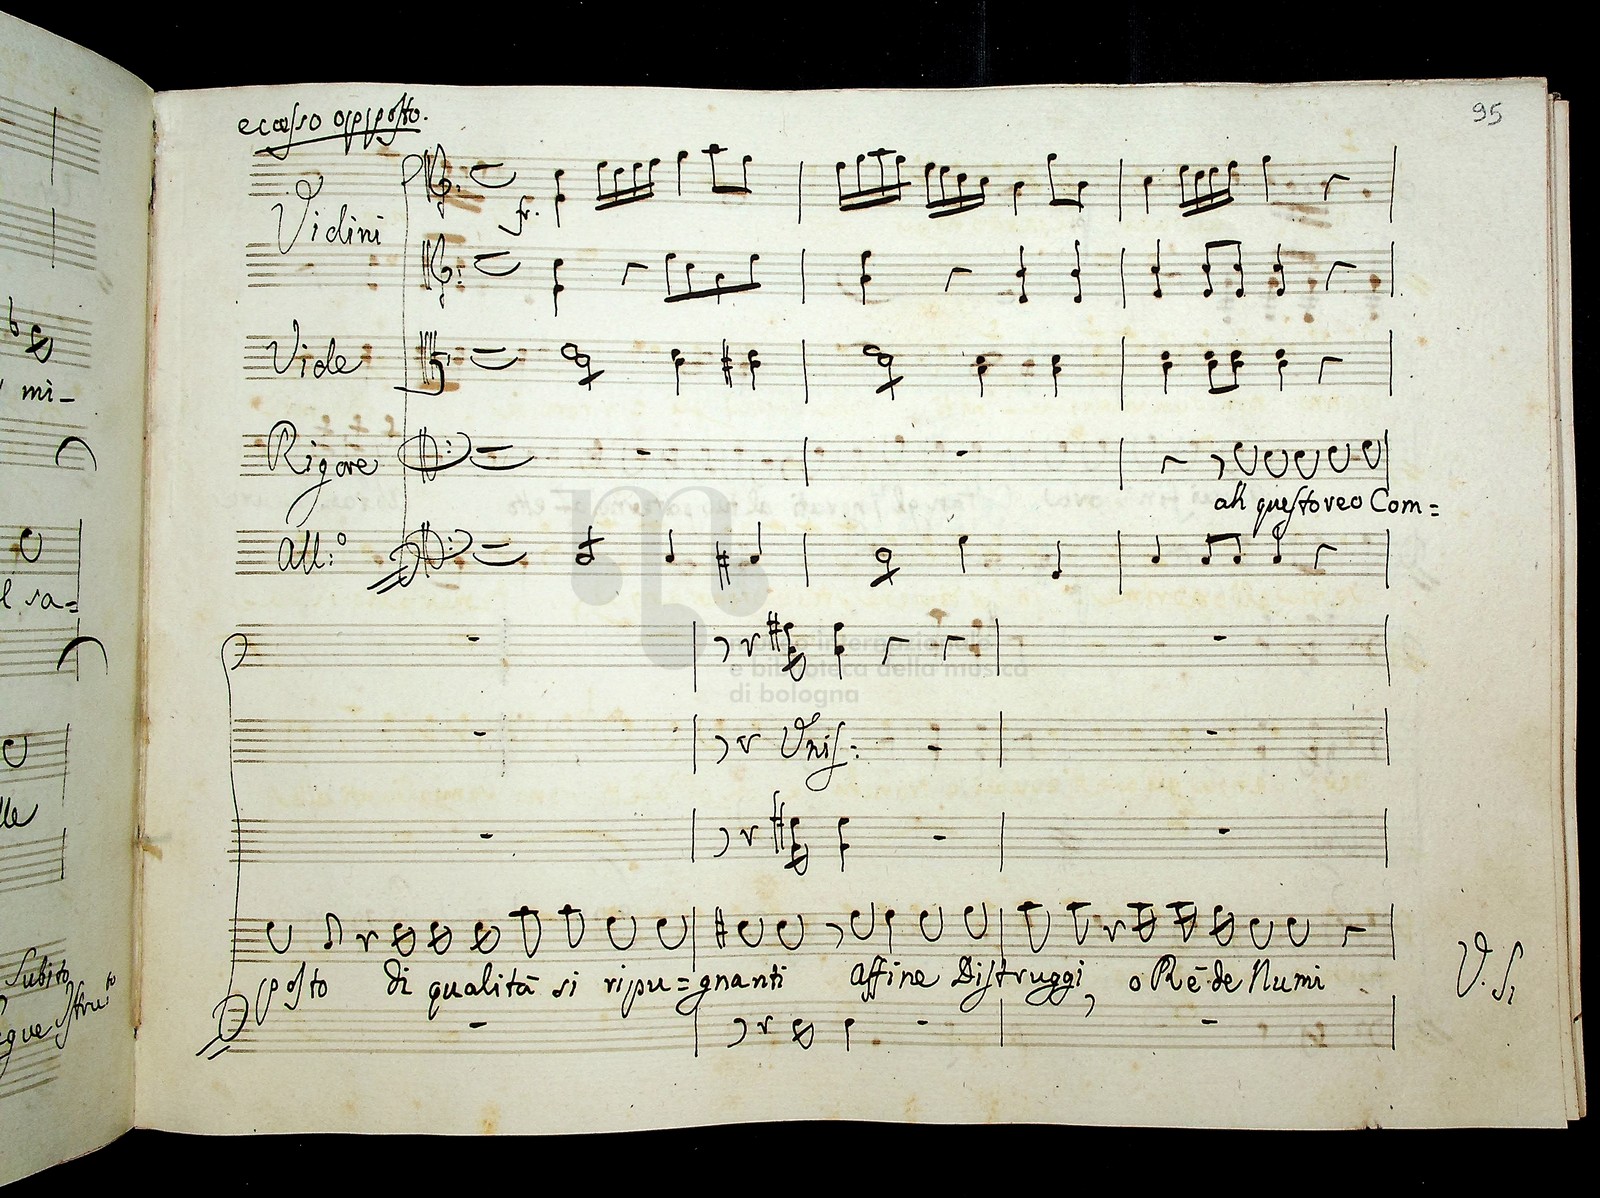 95
eccesso opposto.
Violini
fr.
Viole
Rigore
ah questo reo Com=
All:°
mi_
l sa=
Unis:
lle
sposto di qualità si ripu=gnanti affine Distruggi, o Rè de Numi
V. S.
Subito
segue Strum.to
m
museo internazionale
e biblioteca della musica
di bologna